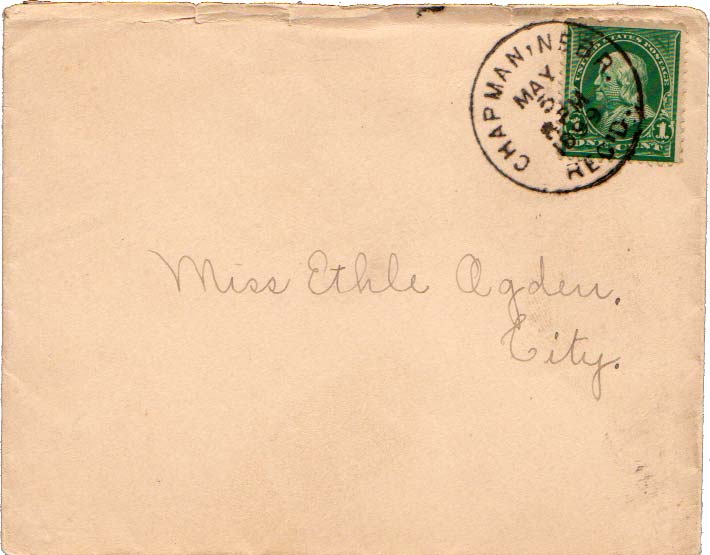 CHAPMAN, NEBR.
MAY
REC'D.
UNITED STATES POSTAGE
1
ONE CENT
Miss Ethle Ogden.
City.